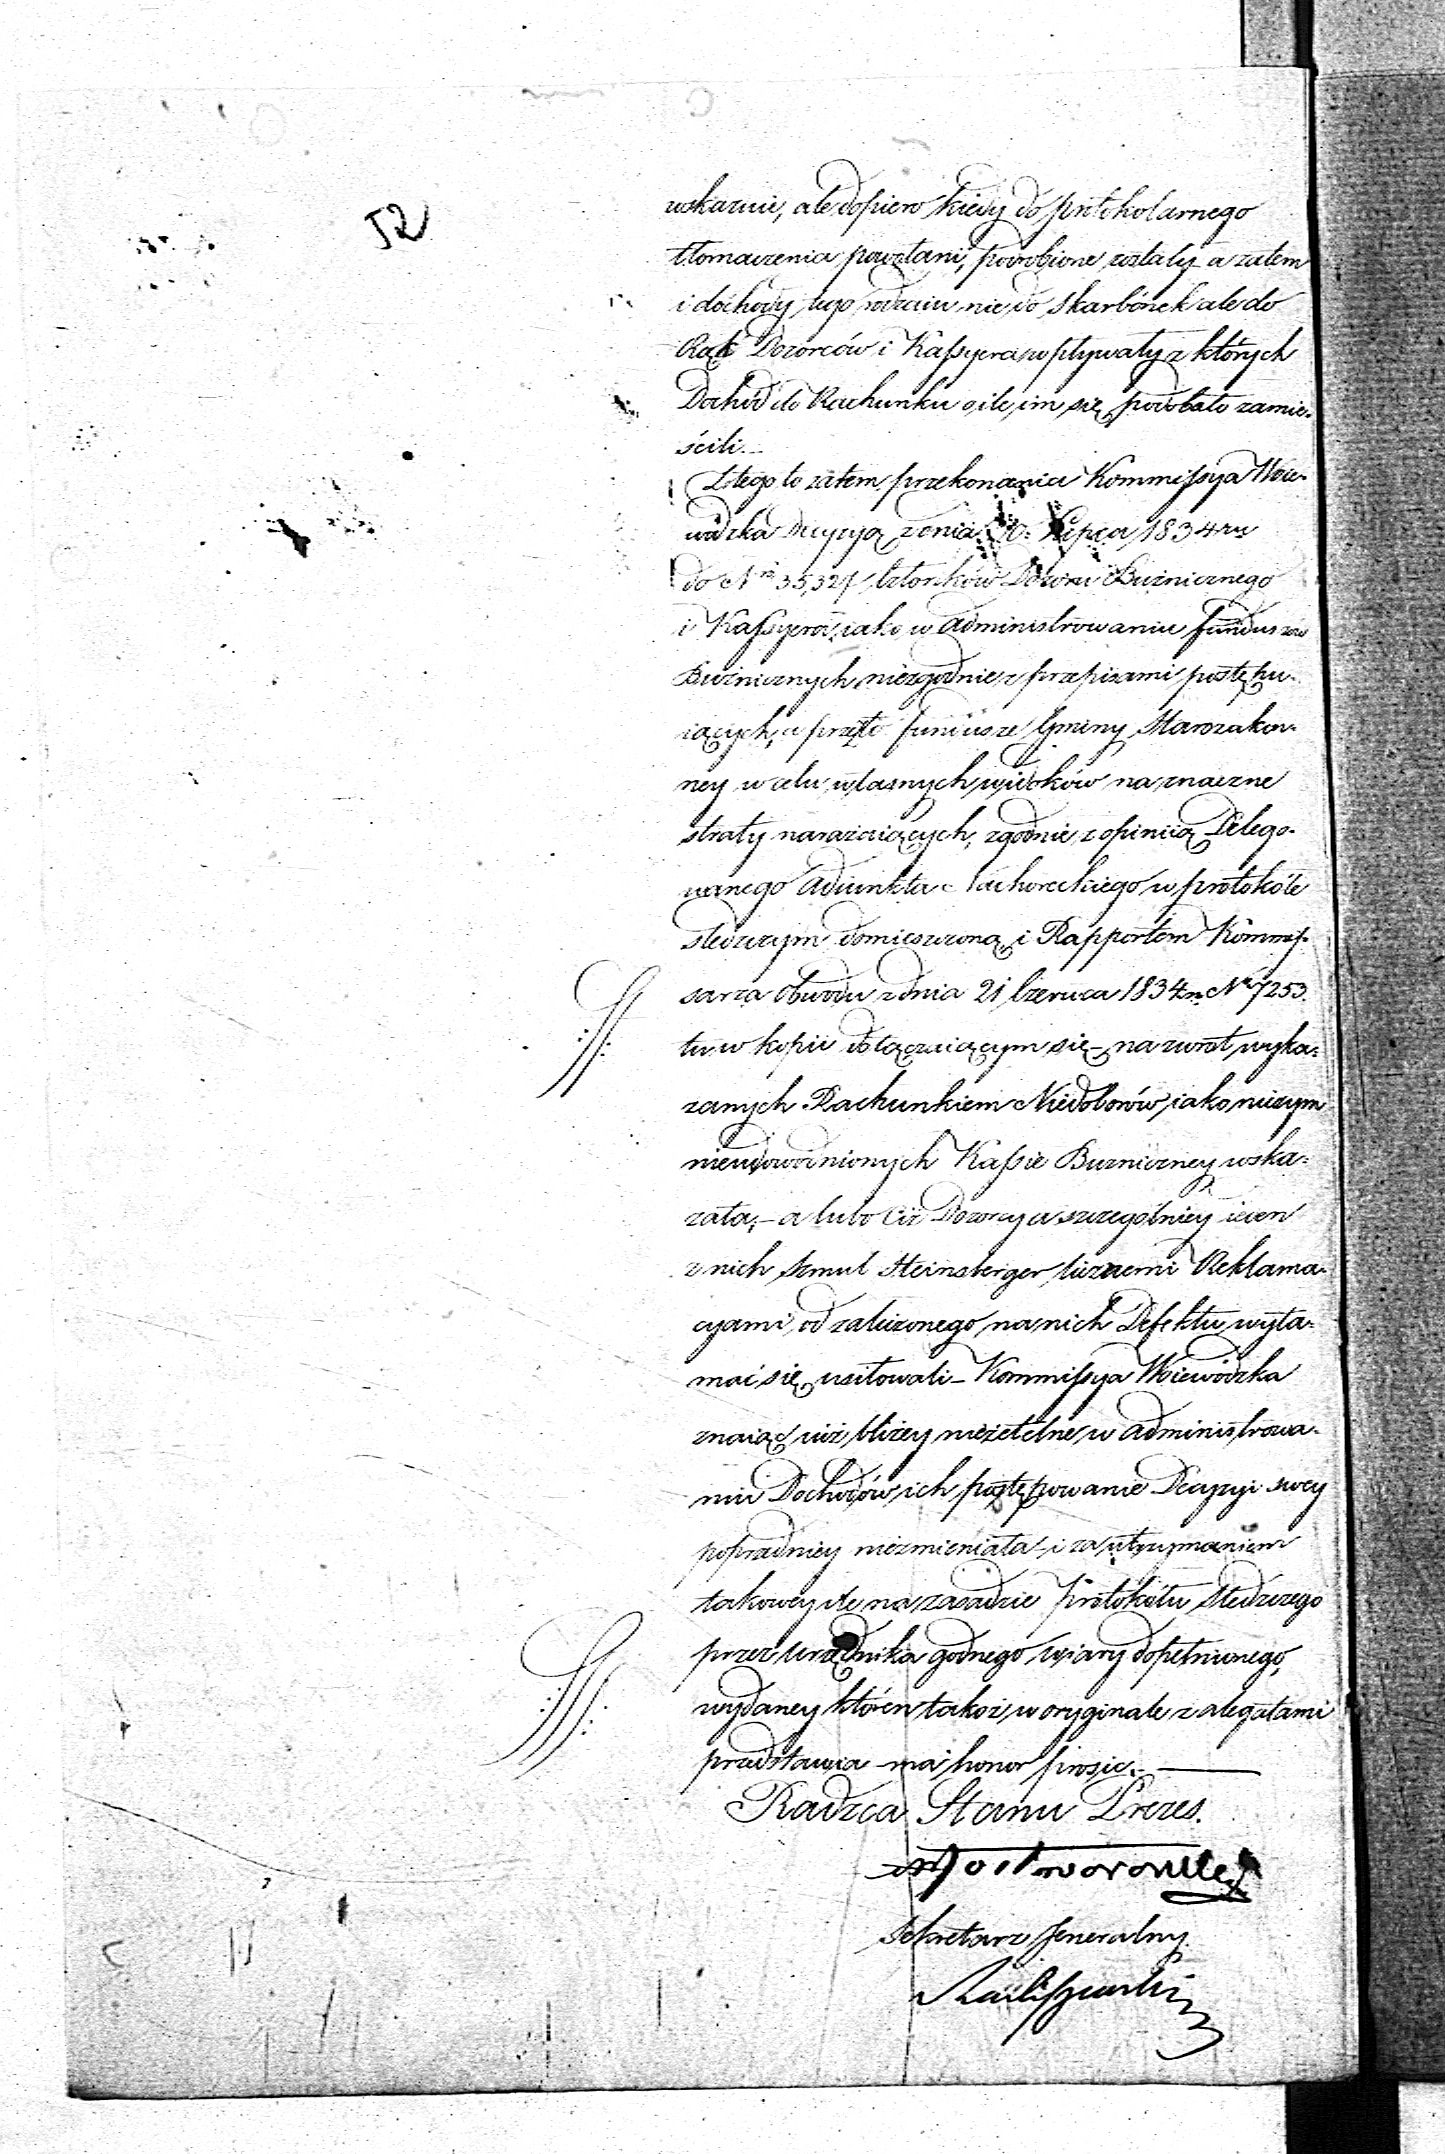 52
wskazuie, ale dopiero kiedy do protokolarnego
tłomaczenia powołani, podrobione zostały a zatem
i dochody tego rodzaiu nie do skarbonek ale do
Rąk Dozorców i Kassyera wpływały z których
Dochód do Rachunku o ile im się podobało zamie-
ścili.
Z tego to zatem przekonania Kommissya Woie-
wódzka decyzyą z dnia Lipca 1834 ru
do Nru członków Dozoru Bużnicznego
i Kassyera, iako w administrowaniu funduszów
Bużnicznych niezgodnie z przepisami postępu-
iących, a przeto fundusze Gminy Starozakon-
ney w celu własnych widoków na znaczne
straty narażaiących, zgodnie z opiniią Delego-
wanego Adiunkta w protokóle
śledczym domieszczoną i Rapportem Kommis-
sarza Obwodu z dnia 21 Czerwca 1834 r. Nr 7253.
tu w kopii dołączaiącym się – na zwrot wyka-
zanych Rachunkiem Niedoborów, iako niczym
nieudowodnionych Kassie Bużniczney wska-
zała, – a lubo ciż Dozorcy a szczególniey ieden
z nich Szmul Steinberger licznemi Reklama-
cyami od zaliczonego na nich Defektu wyła-
mać się usiłowali – Kommissya Woiewódzka
znaiąc iuż bliżey nierzetelne w administrowa-
niu Dochodów ich postępowanie Decyzyi swey
poprzedniey niezmieniała – i za utrzymaniem
takowey ile na zasadzie Protokółu śledczego
przez urzędnika godnego wiary dopełnionego,
wydaney któren takoż w oryginale z alegatami
przedstawia – ma honor prosić. –
Radzca Stanu Prezes.
Sekretarz Jeneralny